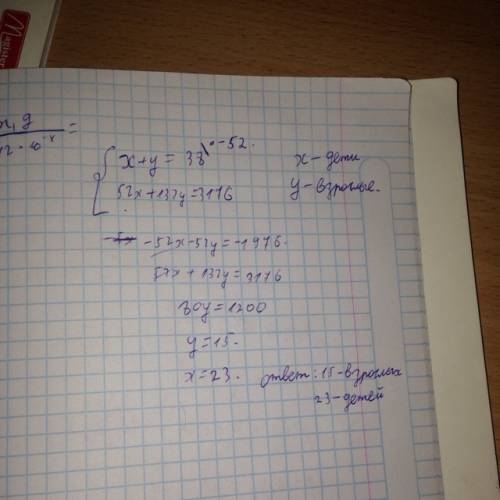 x+y=38 |·-52.
52x+132y=3176
x-дети
y-взрослые.
-52x-52y=-1976.
52x+132y=3176
80y=1200
y=15.
x=23.
ответ: 15-взрослых
23-детей